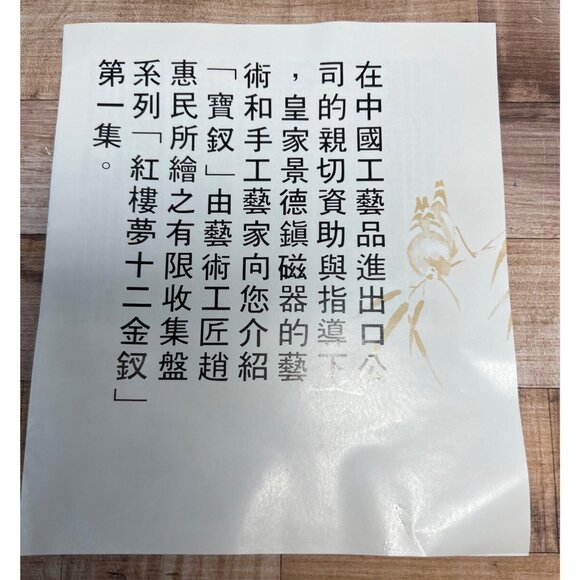 在中國工藝品進出口公
司的親切資助與指導下
，皇家景德鎮磁器的藝
術和手工藝家向您介紹
「寶釵」由藝術工匠趙
惠民所繪之有限收集盤
系列「紅樓夢十二金釵」
第一集。